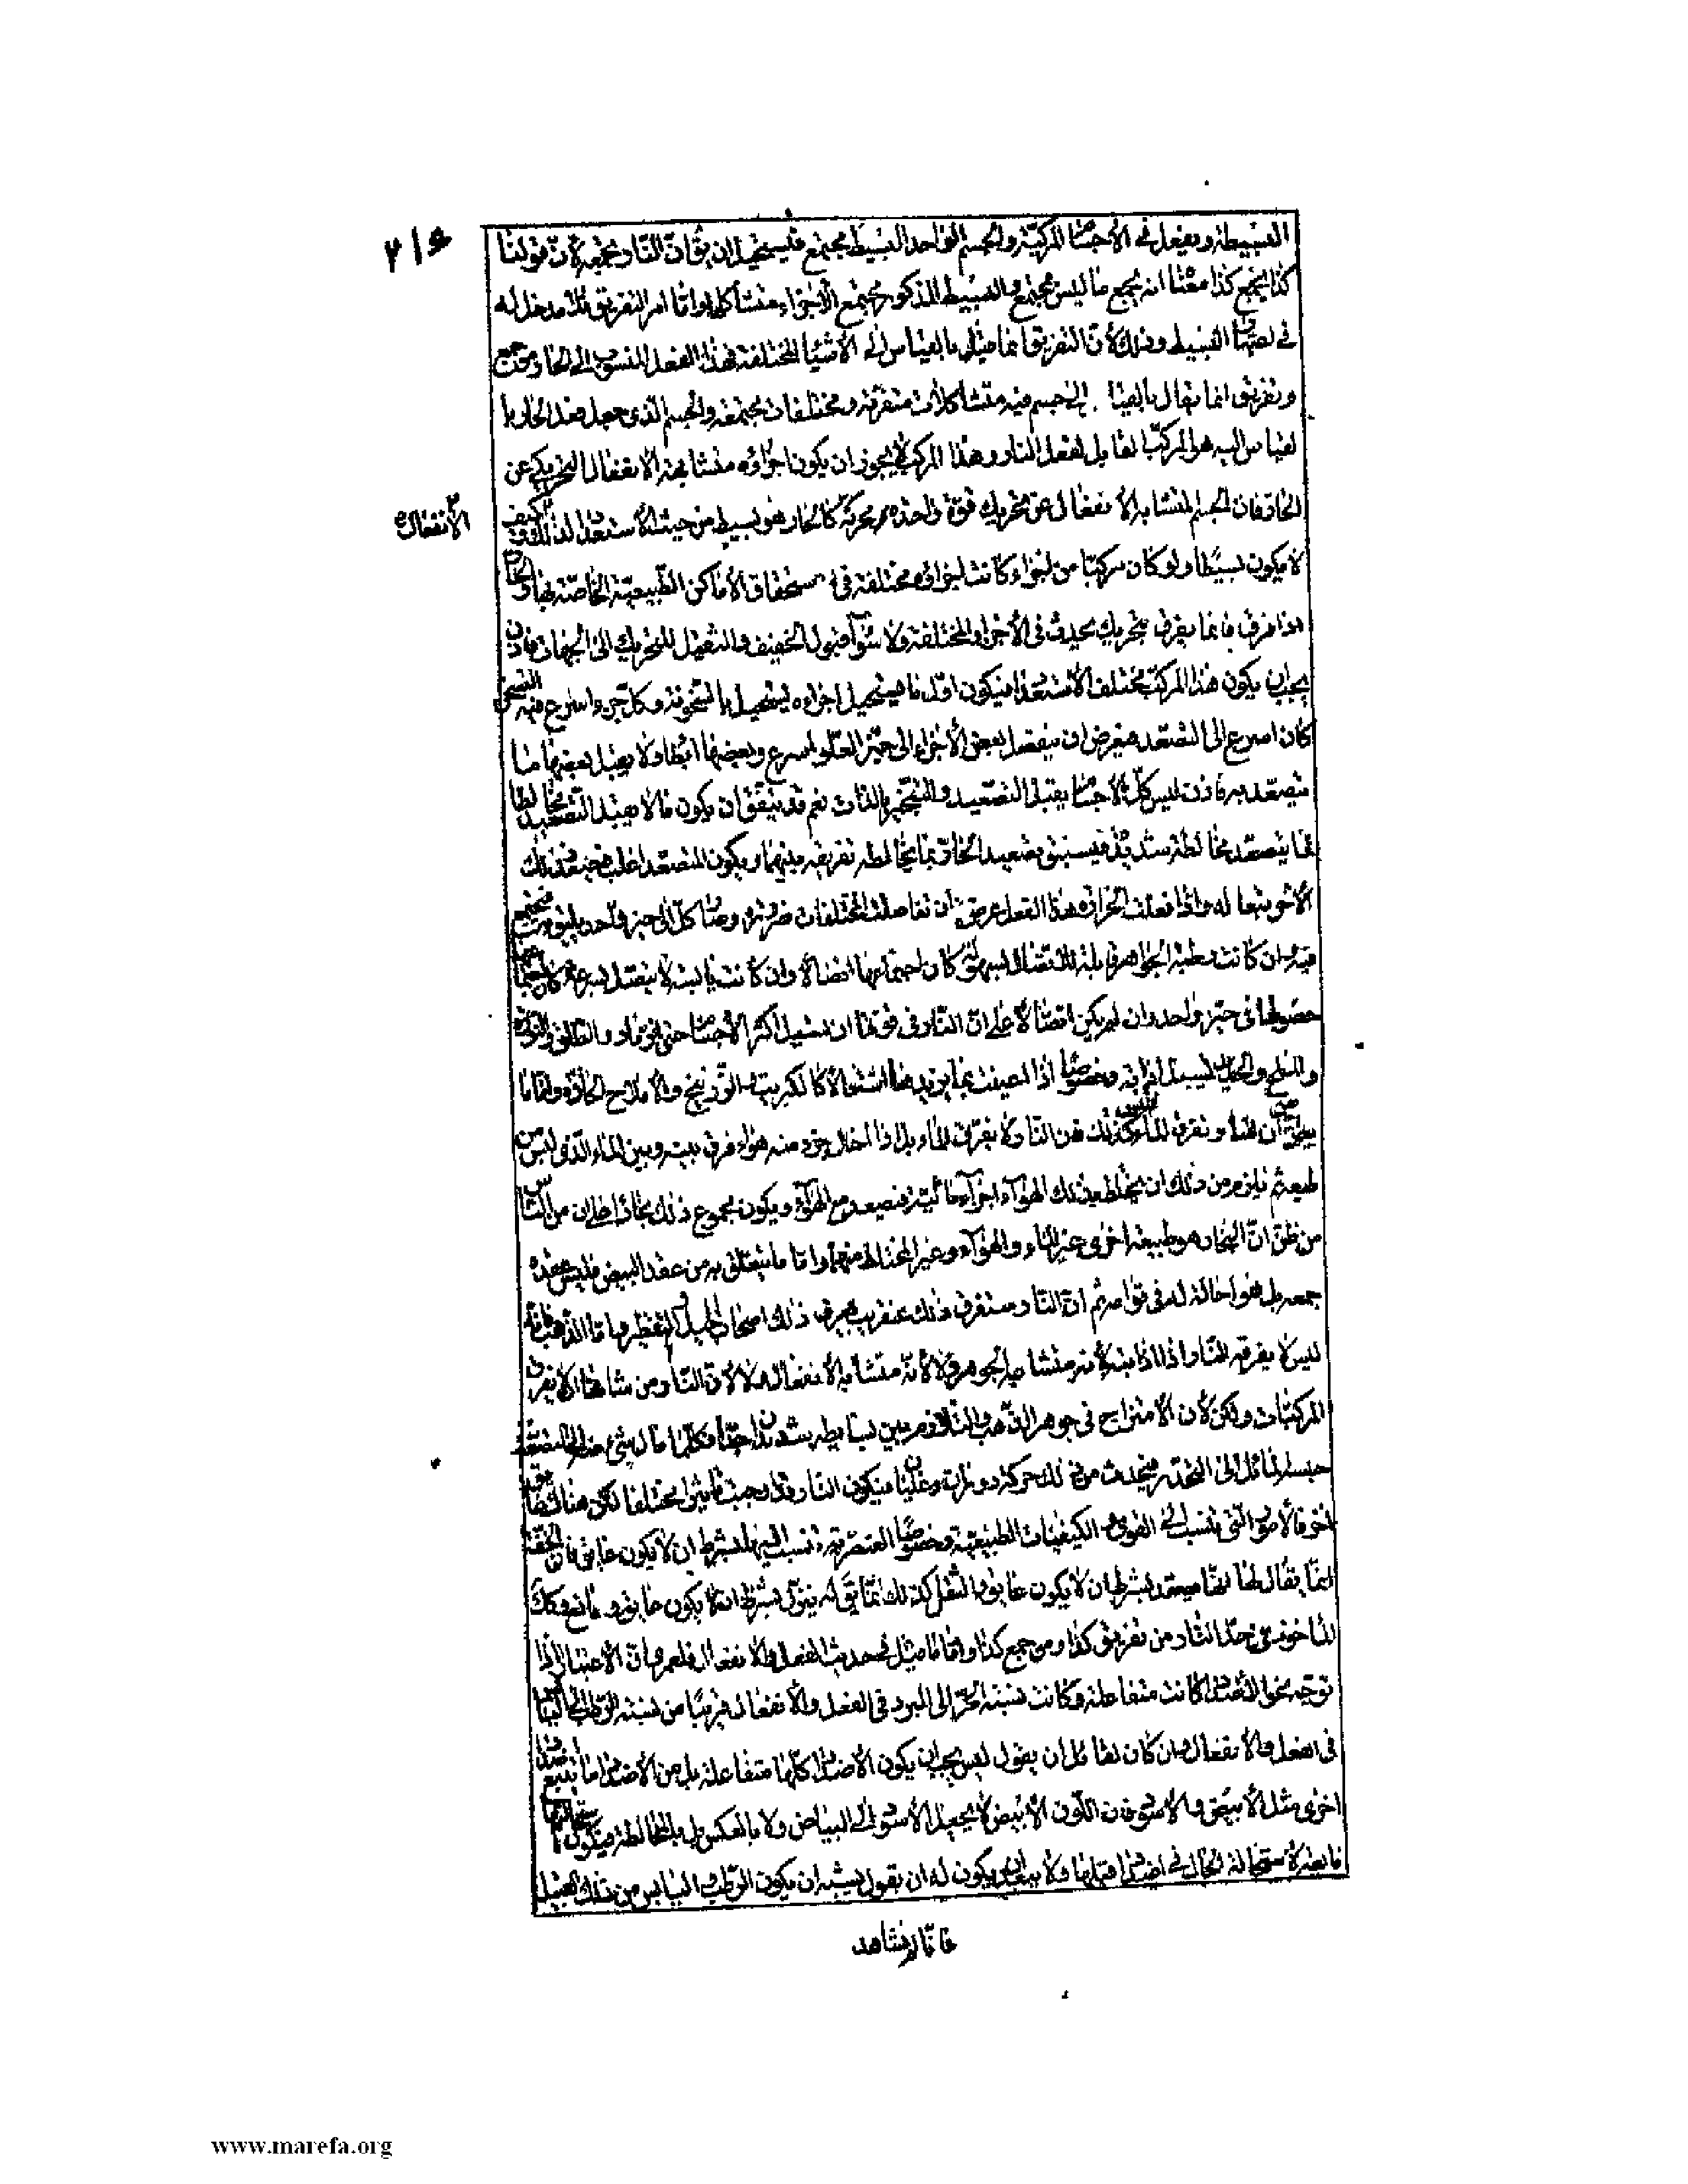 البسيطة ويفعل في الأجسام المركبة والجسم الواحد البسيط مجتمع فيستحيل ان يقال ان النار تجمعه لأن قولنا
كذا يجمع كذا معناه انه يجمع ما ليس بمجتمع والبسيط المذكور مجتمع الأجزاء متشاكلها واما امر التفريق فلا مدخل له
في البسيط وذلك لأن التفريق انما بالقياس الى الأشياء المختلفة فهذا الفعل المنسوب الى الحار من جمع
وتفريق انما يقال بالقياس الى جسم فيه متشاكلات متفرقة ومختلفات مجتمعة والجسم الذي جعل فعل الحار با
لقياس اليه هو المركب القابل لفعل النار وهذا المركب لا يجوز ان يكون اجزاؤه متشابهة الانفعال التحريكي عن
الحار فان الجسم المتشابه الأنفعال عن تحريك قوة واحدة محركة كالحار هو بسيط من حيث الأستعداد لذلك وكيف
الأنفعال
لا يكون بسيطا ولو كان مركبا من اجزاء كانت اجزاؤه مختلفة في استحقاق الأماكن الطبيعية الخاصة بها والحار
اذا فرق فانما يفرق بتحريك يحدث في الأجزاء المختلفة ولا سواء قبول الخفيف والثقيل للتحريك الى الجهات فاذن
يجب ان يكون هذا المركب مختلف الأستعداد فيكون اول ما يستحيل اجزاءه يستحيل بالسخونة وكل جزء اسرع فيه التسخن
كان اسرع الى التصعد فيعرض ان ينفصل بعض الأجزاء الى حيز العلو اسرع وبعضها ابطأ ولا يقبل بعضها ما
يتصعد به فاذن ليس كل الأجسام يقبل التصعيد والتبخير بالذات نعم قد يتفق ان يكون ما لا يقبل التصعيد مخالطا
لما يتصعد مخالطة شديدة فيسبق تصعيد الحار لما يخالطه تفريقه بينهما ويكون المتصعد اغلب فيصعد ذلك
الآخر تبعا له واذا فعلت الحرارة هذا الفعل عرض ان تفاصلت المختلفات ضرورة وصار كل الى حيز واحد يليق به فتجتمع
فيه وان كانت رطبة الجواهر قابلة للاتصال بسهولة كان اجتماعها اتصالا وان كانت يابسة لا يتصل بسرعة كان اجتماعها
حصولها في حيز واحد وان لم يكن اتصالا على ان النار في قوتها ان تسيل اكثر الأجسام حتى الرماد والطلق والنورة
والملح والحديد اذابة وخصوصا اذا اعينت بما يزيدها اشتعالا كالكبريت والزرنيخ والأملاح الحادة واما ما
يظن من ان النار تفرق الماء فليس كذلك فان النار لا تفرق الماء بل اذا احال جزء منه هواء فرق بينه وبين الماء الذي ليس من
طبعه ثم يلزم من ذلك ان يختلط بذلك الهواء اجزاء مائية فتصعد مع الهواء ويكون مجموع ذلك بخارا على ان من الناس
من ظن ان البخار هو طبيعة اخرى غير الماء والهواء وغير المختلط منهما واما ما يتعلق به من عقد البيض فليس عقده
جمعه بل هو احالة له في قوامه ثم ان النار ستفرق ذلك عن قريب يعرف ذلك اصحاب الحيل والتقطير واما الذهب فانه
ليس لا يفرقه النار اذا اذابته لأنه متشابه الجوهر ولا لأنه متشابه الأنفعال ولا لأن النار من شأنها ان لا يفرق
المركبات ولكن لأن الأمتزاج في جوهر الذهب والتلازم بين بسائطه شديد جدا فكلما مال شيء منها الى التصعد
حبسه المائل الى التحدر فيحدث من ذلك حركة دوران وغليان فيكون النار قد اوجبت تأثيرا مختلفا لكن هناك عائق
اخر فالأمور التي ينسب الى القوى والكيفيات الطبيعية وخصوصا العنصرية تنسب اليها بشرط ان لا يكون عائق فان الخفة
انما يقال لها انها مصعد بشرط ان لا يكون عائق والثقل كذلك انما يق له ينزل بشرط ان لا يكون عائق ومانع وكك
المأخوذ في حد النار من تفريق كذا ومن جمع كذا واما ما قيل في حديث الفعل والانفعال فلعمري ان الأعتبار اذا
توجه نحو الأضداد كانت متفاعلة وكانت نسبة الحر الى البرد في الفعل والأنفعال قريبا من نسبة الرطب الى اليابس
في الفعل والأنفعال وان كان لقائل ان يقول ليس يجب ان يكون الأضداد كلها متفاعلة بل من الأضداد ما يتبع اضدادا
اخرى مثل الأبيض والأسود فان اللون الأبيض لا يحيل الأسود الى البياض ولا بالعكس بل بالمخالطة فيكون استحالتهما
تابعة لأستحالة الحال في اضداد قبلها ولا يبعد ان يكون له ان يقول يشبه ان يكون الرطب واليابس من ذلك القبيل
فانا لم نشاهد
www.marefa.org